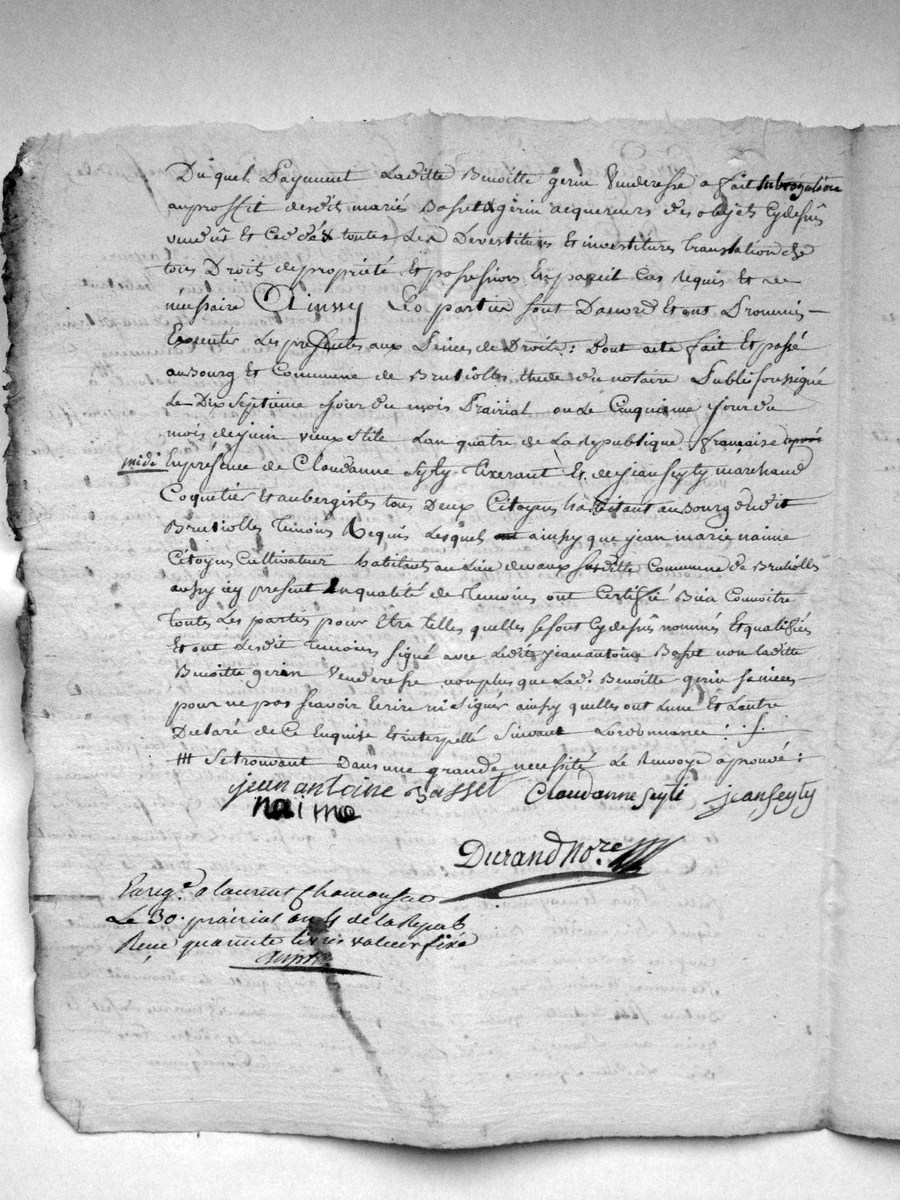 Duquel Payement Laditte Benoitte gerin Venderesse a fait subrogation
au proffit desdit mariés Basset & gerin acquereurs des objets Cy dessûs
vendûs et Ceddés toutes Les Devestitures Et investitures translation de
tous Droits de propriété Et possessions En pareil Cas Requis Et ne
nécessaire Ainssy Les parties sont Daccord Et ont Promis –
Exécuter Les presentes aux Peines de Droits : Dont acte fait Et passé
au Bourg Et Commune de Brussiolles Etude du notaire Public soussigné
Le Dix Septieme Jour du mois Prairial ou Le Cinquieme Jour du
mois de juin vieux stile Lan quatre de La republique française après
midi En presence de Claudanne Seyty tixerant Et de jean Seyty marchand
Coquetier Et aubergistes tous Deux Citoyens habitant au Bourg dudit
Brussiolles temoins Requis Lesquel ainssy que jean marie naime
Citoyen Cultivateur habitant au Lieu de vaux susditte Commune de Brussiolles
aussy icy present En qualité de temoins ont Certifié Bien Connoitre
toutes Les parties pour Etre telles quelles se sont Cy dessûs nommés Et qualifiés
Et ont Lesdit temoins signé avec Ledit jean antoine Basset non laditte
Benoitte gerin Venderesse non plus que Lad. Benoitte gerin
pour ne pas scavoir Ecrire ni Signer ainssy quelles ont Lune Et Lautre
Declaré de Ce Enquise Et interpellé Suivant Lordonnance : ./.
/// Se trouvant Dans une grande necessité Le Renvoye aprouvé :
jean antoine Basset Claudanne Seyti jean Seyty
naime
Durand Nore
Enreg.é a laurent Chamousset
Le 30. prairial an 4 de la Repub
Recu quarante livres valeur fixé